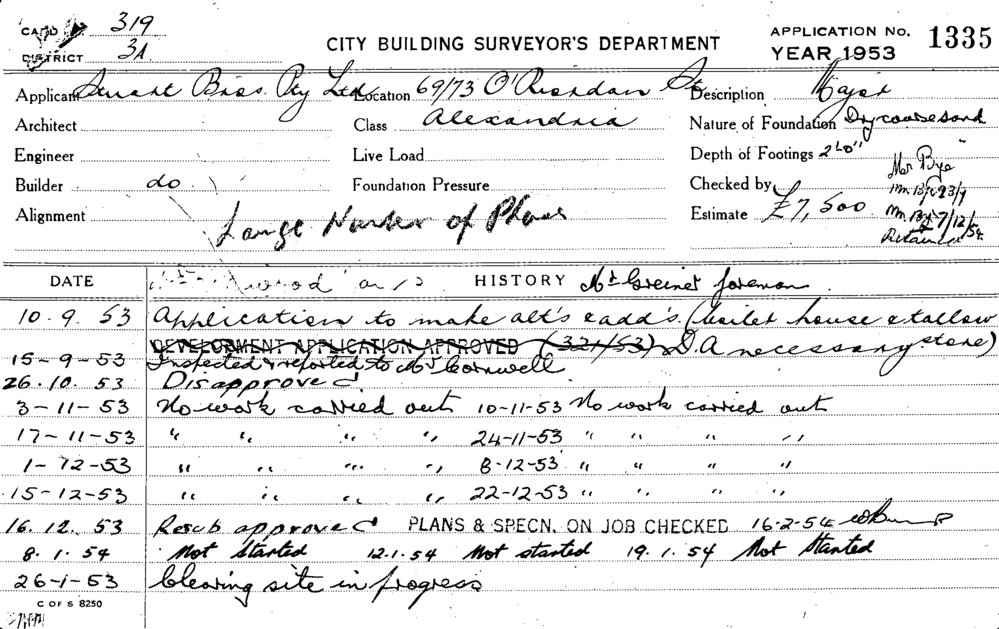 CARD 319
DISTRICT 3A
CITY BUILDING SURVEYOR'S DEPARTMENT
APPLICATION No. 1335
YEAR 1953
Applicant Stuart Bros. Pty Ltd Location 69/73 O'Riordan St Description Major
Architect Class Alexandria Nature of Foundation Dry coarse sand
Engineer Live Load Depth of Footings 2'-0"
Builder do Foundation Pressure Checked by Mr Bye
Mr Bye 23/9
Alignment Large Number of Plans Estimate £7,500 Mr Bye 7/12/54
Retained
DATE HISTORY Mr Greiner foreman
10.9.53 Application to make alt's & add's. (boiler house & tallow store)
DEVELOPMENT APPLICATION APPROVED (321/53) D.A necessary
15-9-53 Inspected & reported to Mr Cornwell
26.10.53 Disapproved
3-11-53 No work carried out 10-11-53 No work carried out
17-11-53 " " " " 24-11-53 " " " "
1-12-53 " " " " 8-12-53 " " " "
15-12-53 " " " " 22-12-53 " " " "
16.12.53 Resub approved PLANS & SPECN. ON JOB CHECKED 16-2-54
8.1.54 Not Started 12.1.54 Not started 19.1.54 Not Started
26-1-53 Clearing site in progress
C OF S 8250